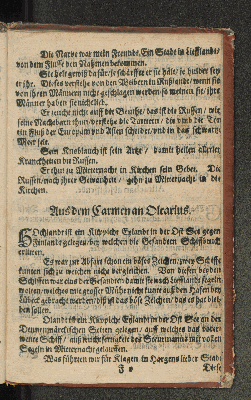 Die Narve war mein Freunde. Ein Stadt in Liefflande/
von dem Flusse den Nahmen bekommen.
Sie helt gewiß dafür/ je schärffter er sie hält/ je holder sey
er ihr. Dieses verstehe von den Weibern in Rußlande/ wenn sie
von ihren Männern nicht geschlagen werden so meinen sie/ ihre
Männer haben sie nicht lieb.
Er forsche nicht auff die Reusche/ das ist die Russen/ wie
seine Nachbarn ihm/ verstehe die Tartern/ die und die Tön
ein Fluß der Europam und Asien scheidet/ und in das schwartze
Meer fält.
Sein Knoblauch ist sein Artzt/ damit heilen allerley
Kranckheiten die Russen.
Er thu zu Mitternacht in Kirchen sein Gebet. Die
Russen/ nach ihrer Gewonheit/ gehn zu Mitternacht in die
Kirchen.
Aus dem Carmen an Olearius.
HOchland ist ein Klippicht Eylande in der Ost See gegen
Finlande gelegen/ bey welchen die Gesandten Schiffbruch
erlitten.
Es war zur Abfart schon ein böses Zeichen/ zwey Schiffe
kunten sich zu weichen nicht vergleichen. Von diesen beyden
Schiffen war eins der Gesandten damit sie nach Liefflande segeln
wolten/ welches mit grosser Mühe nicht kunte auß dem Hafen bey
Lübeck gebracht werden/ diß ist das böse Zeichen/ das es hat bleiben
sollen.
Olande ist ein Klippicht Eylande in der Ost See an der
Dennemärckischen Seiten gelegen/ auff welches das
wene Schiff/ auß nicht des Steurmanns mit vollen
Segeln in Mitternacht gelauffen.
Was führten wir für Klagen im Hertzens lieber Stadt
F
Diese